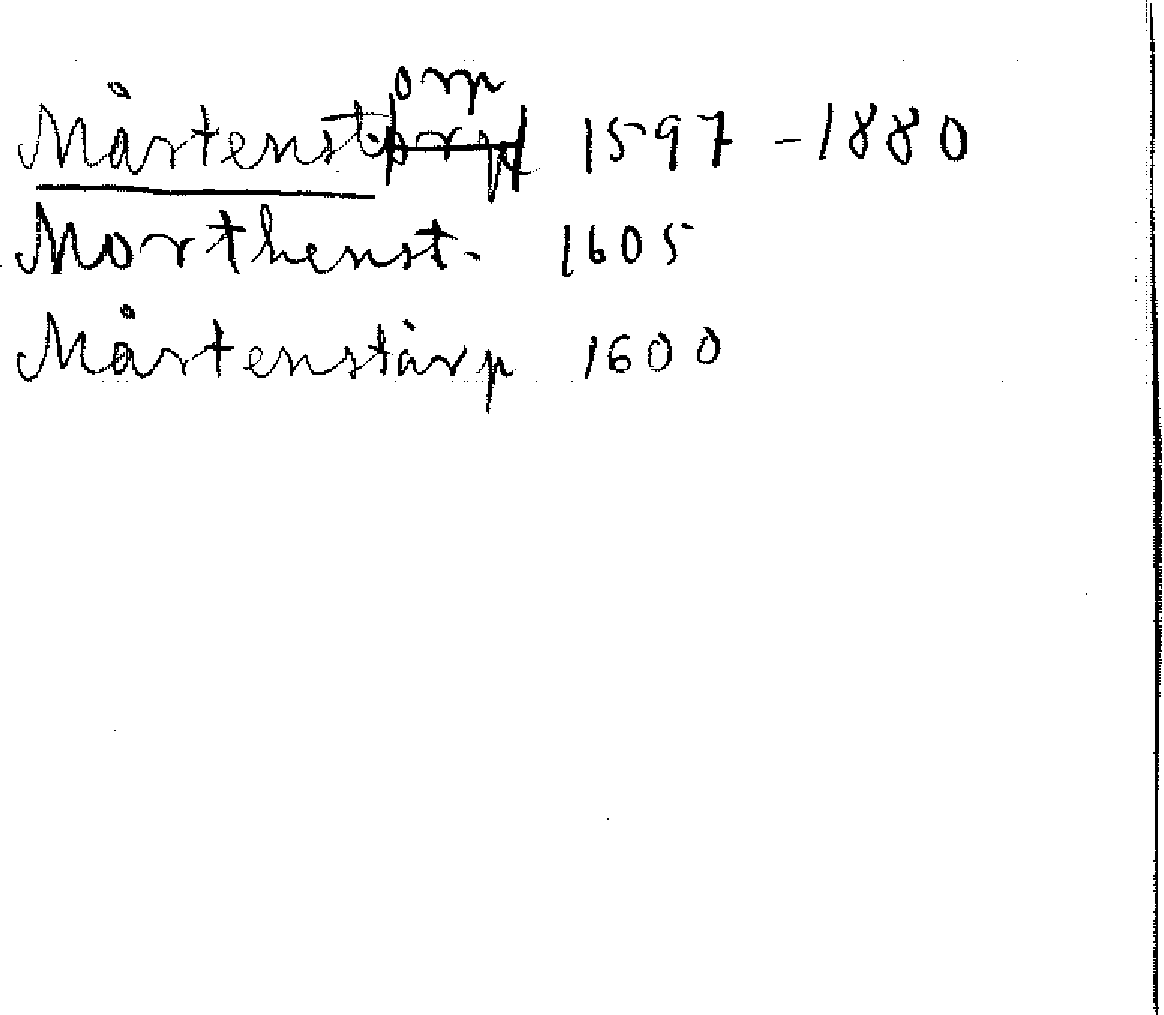 orp
Mårtenst.orp 1597-1880
Morthenst. 1605
Mårtenstårp 1600